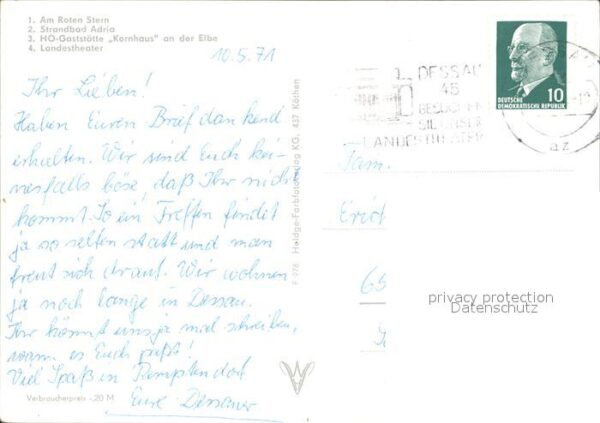 1. Am Roten Stern
2. Strandbad Adria
3. HO-Gaststätte „Kornhaus" an der Elbe
4. Landestheater
10.5.71
Ihr Lieben!
Haben Euren Brief dankend
erhalten. Wir sind Euch kei-
nesfalls böse, daß Ihr nicht
kommt. So ein Treffen findet
ja so selten statt und man
freut sich drauf. Wir wohnen
ja noch lange in Dessau.
Ihr könnt uns ja mal schreiben,
wann es Euch paßt!
Viel Spaß in
Eure Dessauer
Verbraucherpreis -,20 M
F 978 Heldge-Farbfoto Verlag KG, 437 Köthen
DESSAU
45
BESUCHEN
SIE UNSER
LANDESTHEATER
az
10
DEUTSCHE
DEMOKRATISCHE REPUBLIK
Fam.
Erich
65
privacy protection
Datenschutz